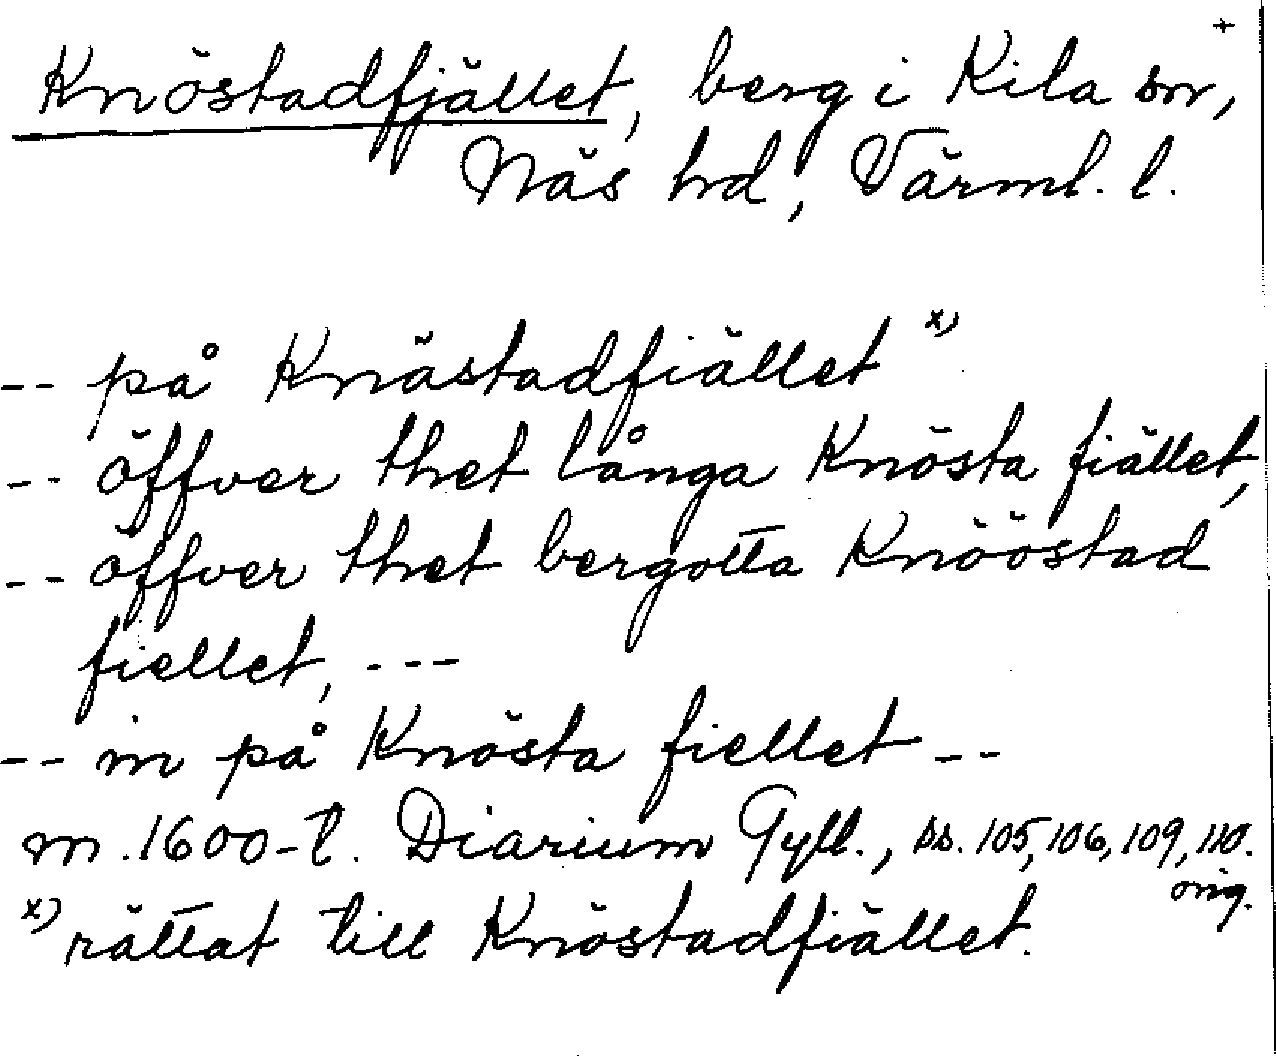 +
Knöstadfjället, berg i Kila sn,
Näs hd, Värml. l.
-- på Knästadfiället x)
-- öffver thet långa Knösta fiället,
-- öffver thet bergotta Knööstad
fiellet, ---
-- in på Knösta fiellet --
m. 1600-t. Diarium Gyll., ss. 105, 106, 109, 110.
orig.
x) rättat till Knöstadfiället.